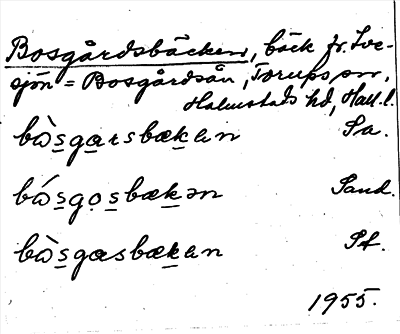 Bosgårdsbäcken, bäck fr. Sve-
sjön = Bosgårdsån, Torups sn,
Halmstads hd, Hall. l.
bå̀sgarsbækan Sa.
bǻsgo̱sbækən Sand.
bå̀sgæsbækan St.
1955.